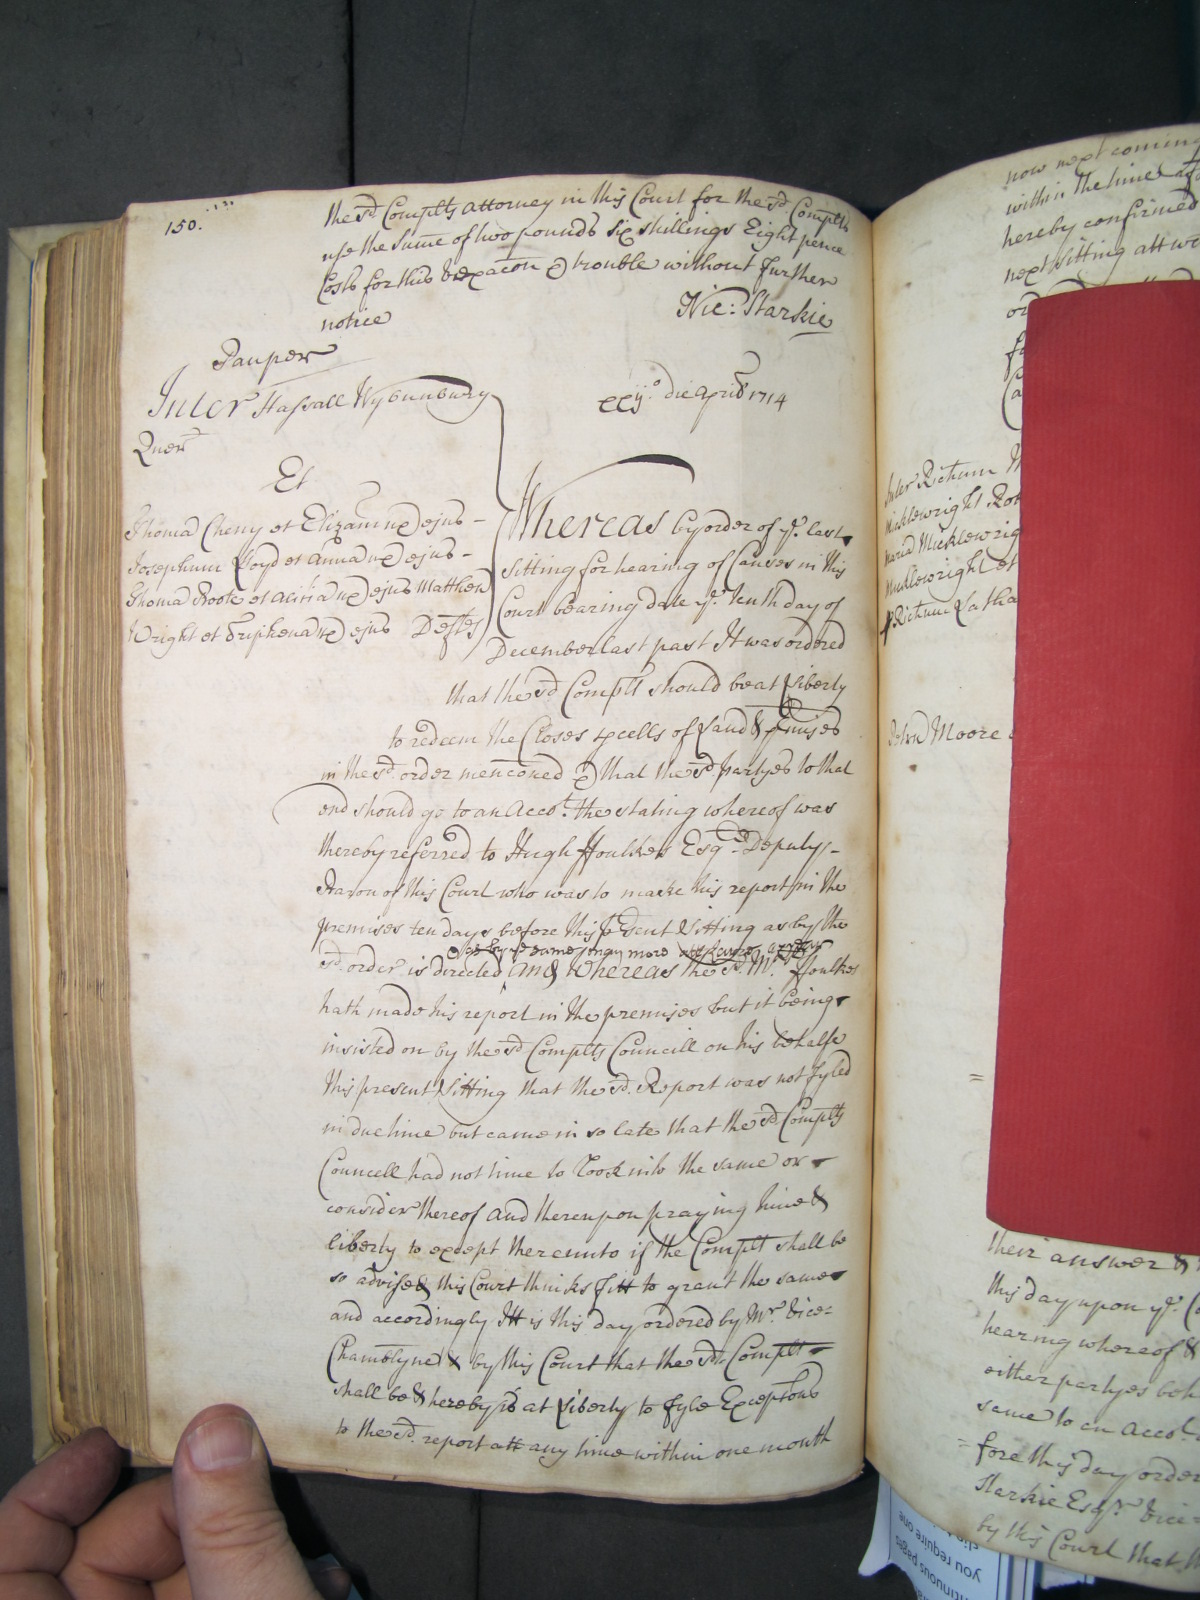 150.
the sd Complts attorney in this Court for the sd Complts
use the sume of two pounds six shillings Eight pence
Costs for this vexacon & trouble without further
notice
Nic: Starkie
Pauper
Inter Hassall Wybunbury
Quer
Et
Thoma Cheny et Eliz ux ejus -
Josephum Lloyd et Anna ux ejus -
Thoma Roote et ux ejus Matthew
Wright et Triphena ux ejus Defts
die April 1714
Whereas by order of ye last
sitting for hearing of Causes in this
Court bearing date ye tenth day of
December last past It was ordered
that the sd Complt should be at Liberty
to redeem the Closes & pcells of Land & pmises
in the sd order menconed & that the sd partyes to that
end should go to an Accot. the stating whereof was
thereby referred to Hugh ffoulkes Esqr. Deputy -
Baron of this Court who was to make his report in the
premises ten days before this psent Sitting as by the
as by ye same may more
sd order is directed And Whereas the sd Mr. ffoulkes
hath made his report in the premises but it being
insisted on by the sd Complts Councill on his behalfe
this present Sitting that the sd Report was not fyled
in due time but came in so late that the sd Complts
Councell had not time to Look into the same or
consider thereof And thereupon praying time &
liberty to except thereunto if the Complt shall be
so advised this Court thinks fitt to grant the same
and accordingly Itt is this day ordered by Mr. Vice=
Chamblyne & by this Court that the sd Complt
shall be & hereby is at Liberty to fyle Exceptons
to the sd report att any time within one month
now next coming
within the time
hereby confirmed
next sitting att
Inter Richum
Micklewright
Maria Micklewrig
Micklewright et
Richum Latha
John Moore
their answer &
this day upon ye
hearing whereof &
either partyes beh
same to an Accot.
fore this day order
Starkie Esqr. Vice
by this Court that
you require one
continuous pages